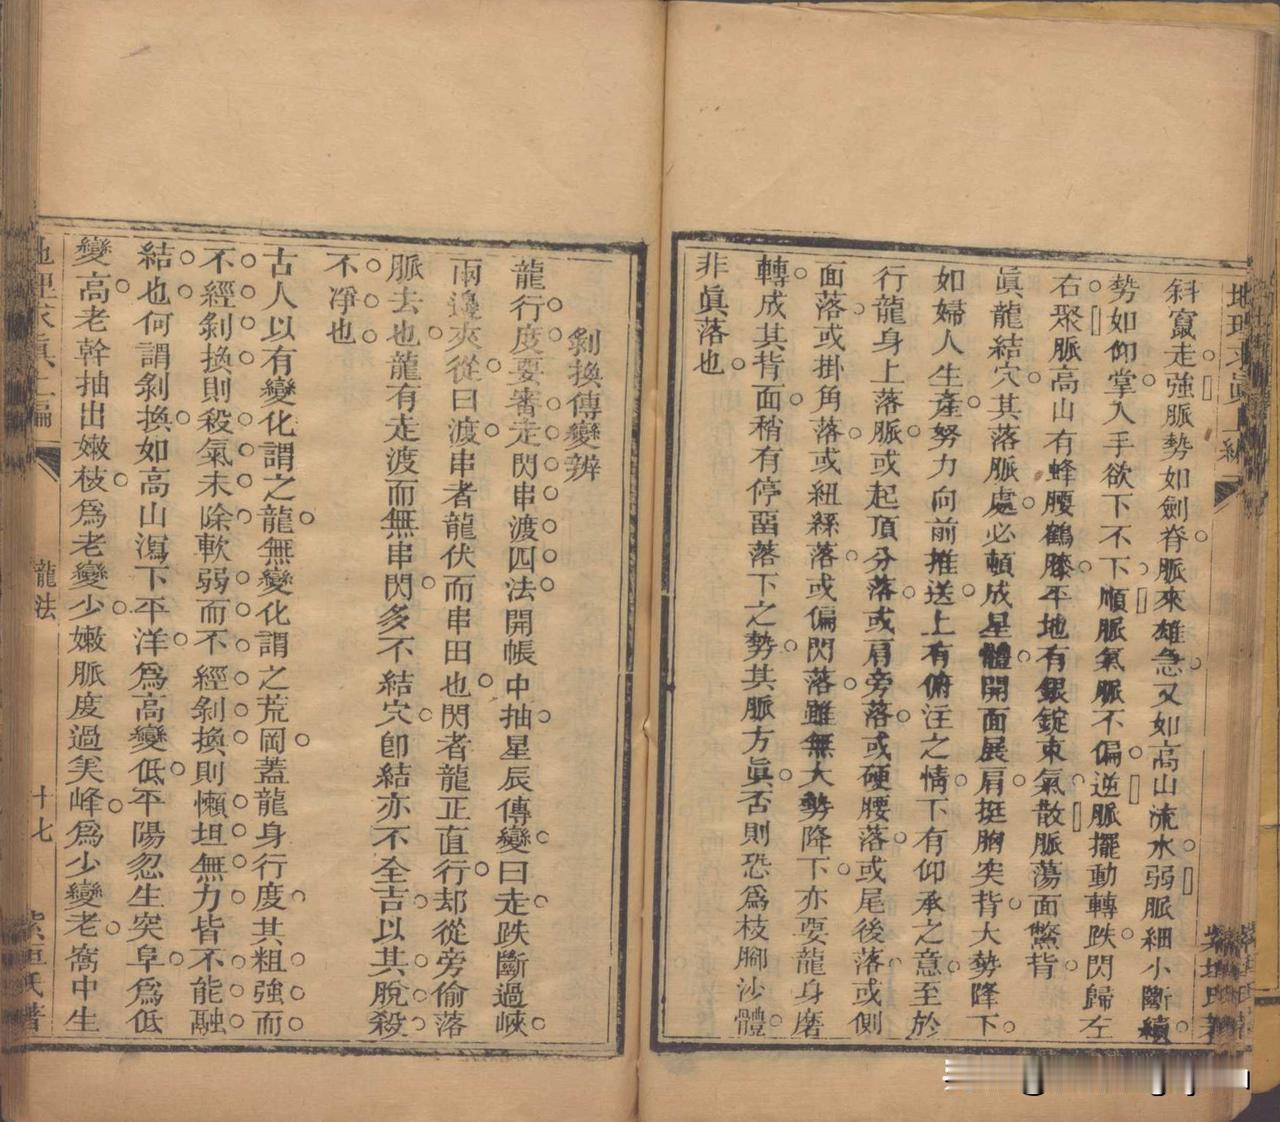 斜竄走強脈勢如劍脊脈來雄急又如高山流水弱脈細小斷續
勢如仰掌入手欲下不下順脈氣脈不偏逆脈擺動轉跌閃歸左
右聚脈高山有蜂腰鶴膝平地有銀錠束氣散脈蕩面鱉背
眞龍結穴其落脈處必頓成星體開面展肩挺胸突背大勢降下
如婦人生產努力向前推送上有俯注之情下有仰承之意至於
行龍身上落脈或起頂分落或肩旁落或硬腰落或尾後落或側
面落或掛角落或紐絲落或偏閃落雖無大勢降下亦要龍身磨
轉成其背面稍有停畱落下之勢其脈方眞否則恐爲枝腳沙體
非眞落也
剝換傳變辨
龍行度要審走閃串渡四法開帳中抽星辰傳變曰走跌斷過峽
兩邊夾從曰渡串者龍伏而串田也閃者龍正直行却從旁偷落
脈去也龍有走渡而無串閃多不結穴卽結亦不全吉以其脫殺
不淨也
古人以有變化謂之龍無變化謂之荒岡蓋龍身行度其粗強而
不經剝換則殺氣未除軟弱而不經剝換則懶坦無力皆不能融
結也何謂剝換如高山瀉下平洋爲高變低平陽忽生突阜爲低
變高老幹抽出嫩枝爲老變少嫩脈度過尖峰爲少變老窩中生
地理求眞上編
龍法
十七